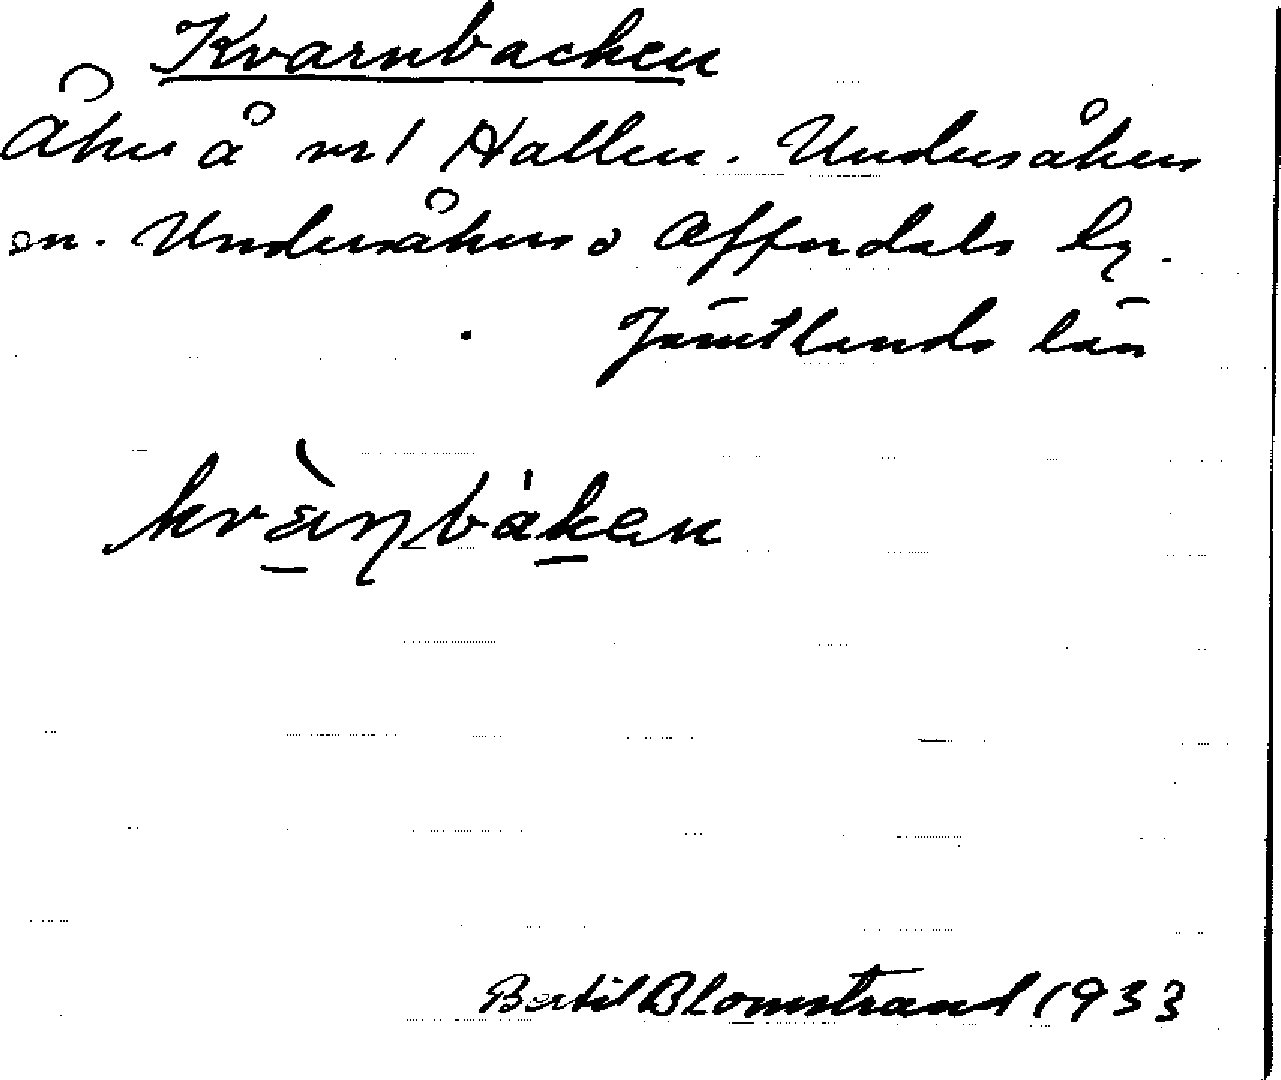 Kvarnbacken
Åker å nr 1 Hallen. Undersåkers
sn. Undersåkers o Offerdals tg.
Jämtlands län
kvànbáken
Bertil Blomstrand 1933